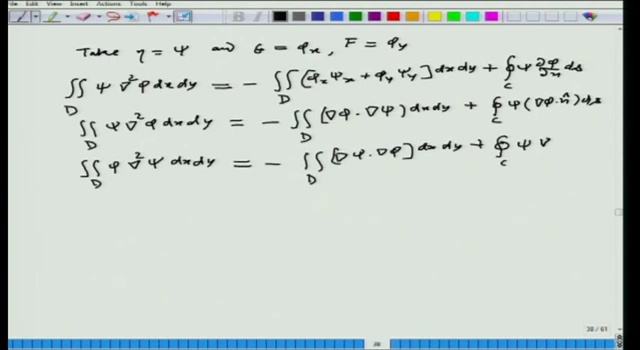 File Edit View Insert Actions Tools Help
Take η = ψ and G = φₓ, F = φᵧ
∬_D ψ ∇²φ dx dy = − ∬_D [φₓ ψₓ + φᵧ ψᵧ] dx dy + ∮_C ψ ∂φ/∂n ds
∬_D ψ ∇²φ dx dy = − ∬_D (∇φ · ∇ψ) dx dy + ∮_C ψ (∇φ · n̂) ds
∬_D φ ∇²ψ dx dy = − ∬_D [∇ψ · ∇φ] dx dy + ∮_C ψ ∇
38 / 61
38